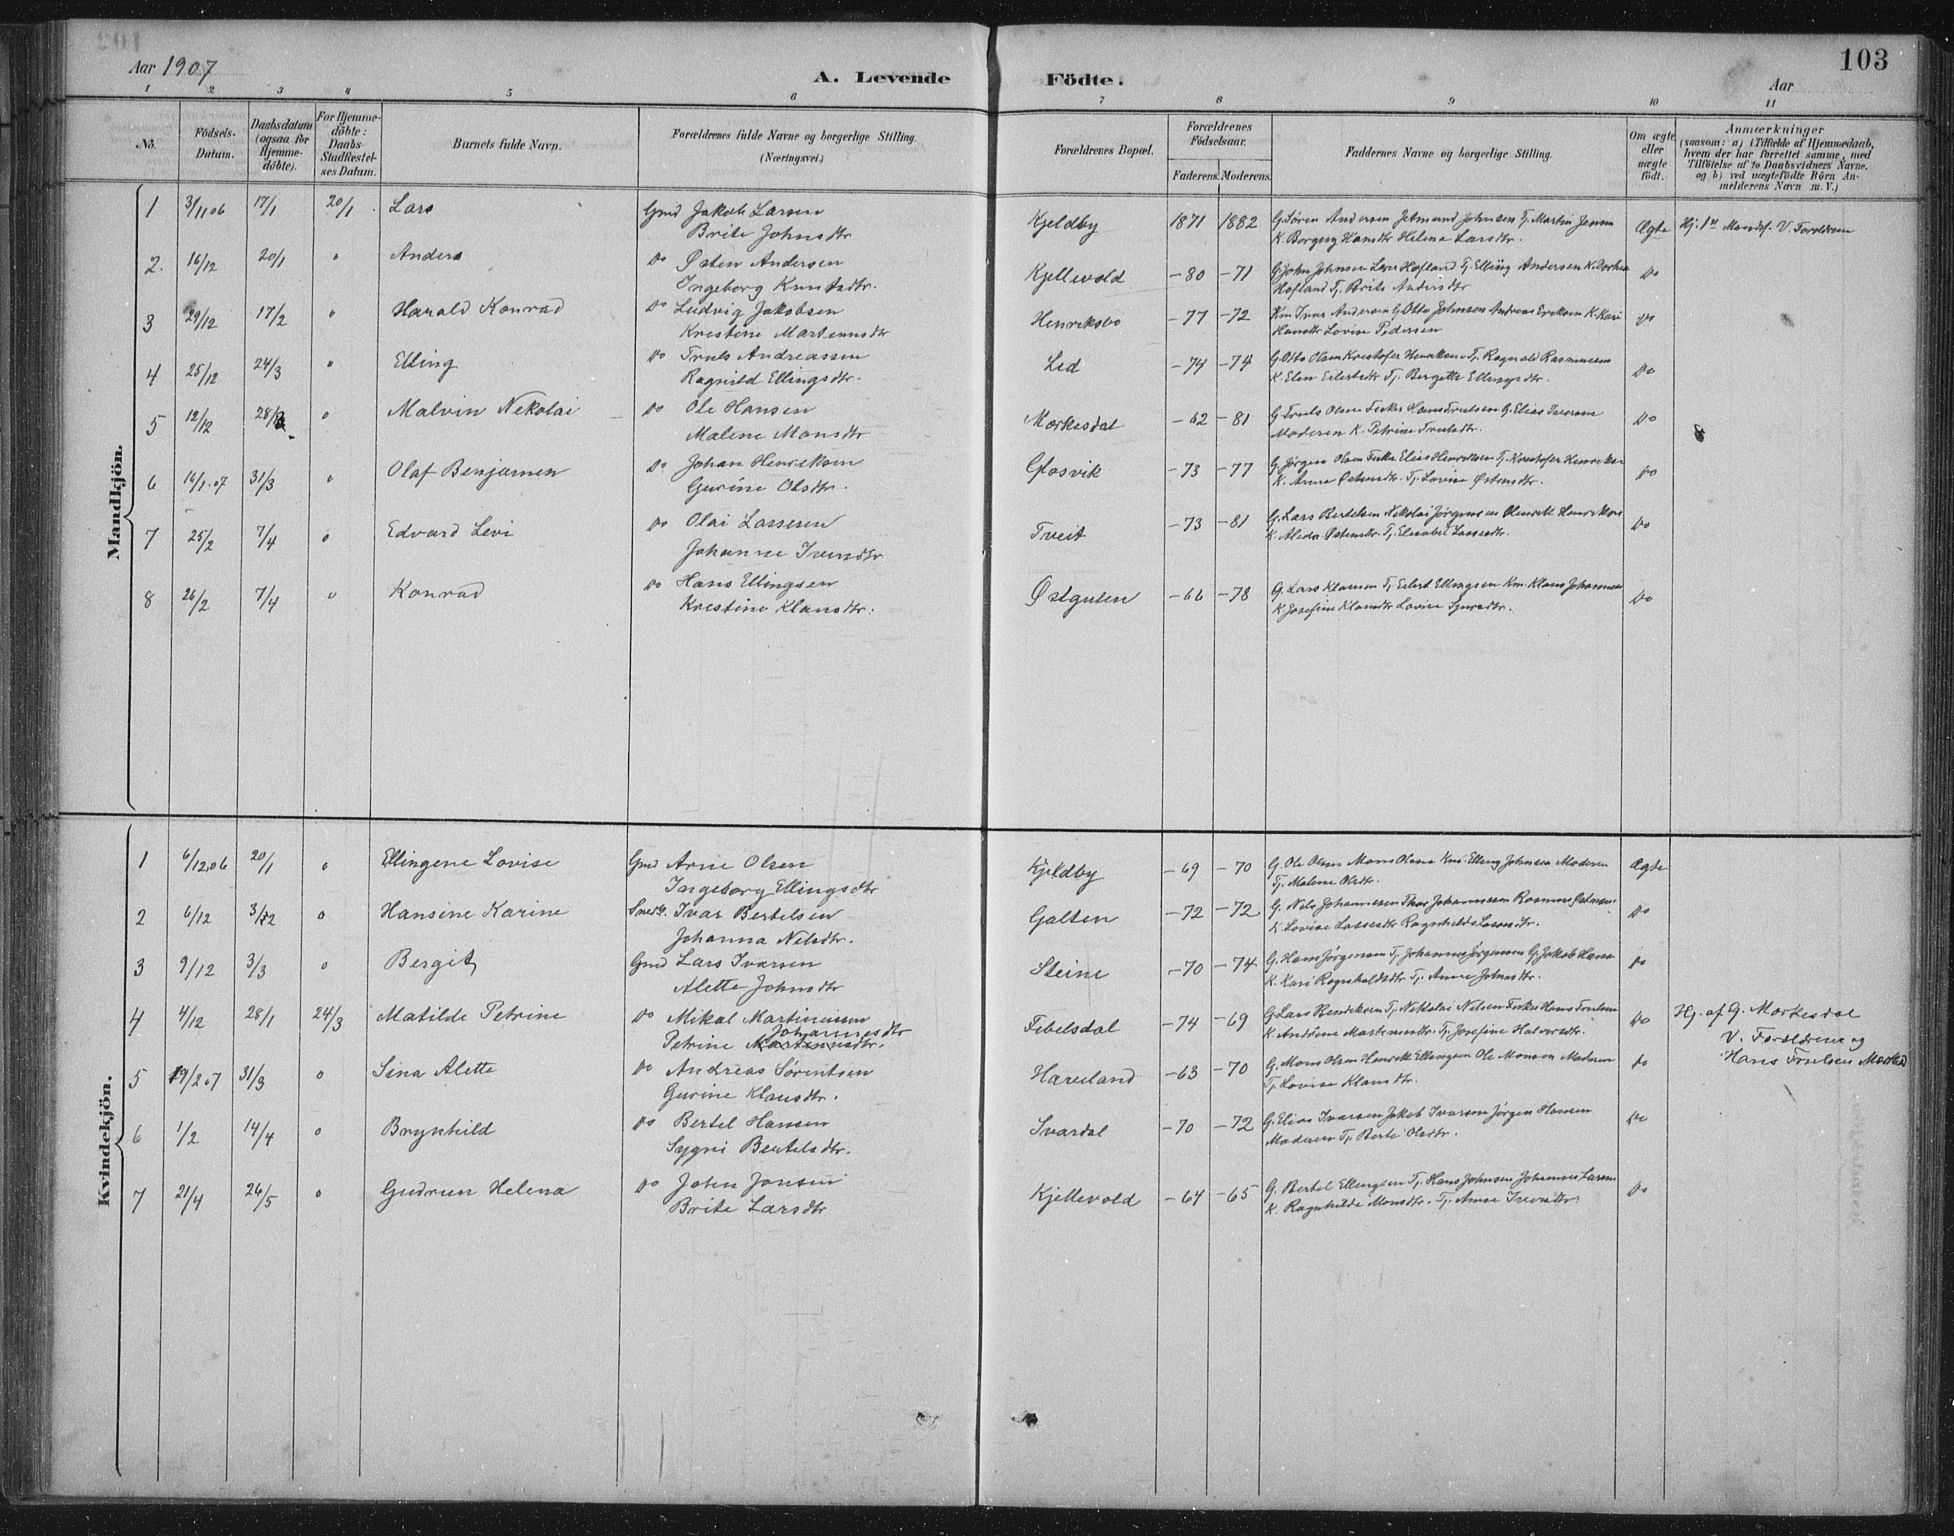 Aar 1907
A. Levende Födte.
Aar
103
1 2 3 4 5 6 7 8 9 10 11
No.
Födsels-Datum.
Daabsdatum (ogsaa for Hjemme-döbte).
For Hjemme-döbte: Daabs-Stadfæstel-ses Datum.
Barnets fulde Navn.
Forældrenes fulde Navne og borgerlige Stilling. (Næringsvei.)
Forældrenes Bopæl.
Forældrenes Födselsaar.
Faderens. Moderens.
Faddernes Navne og borgerlige Stilling.
Om ægte eller uægte födt.
Anmærkninger
(saasom: a) i Tilfælde af Hjemmedaab,
hvem der har forrettet samme, med
Tilföielse af to Daabsvidners Navne.
og b) ved uægtefödte Börn An-
melderens Navn m. V.)
Mandkjön.
1 3/11 06 17/1 20/1 Lars Gmd Jakob Larsen Kjeldby 1871 1882 G. Søren Andersen Jetmund Johnsen Tj. Martin Jensen Ægte Hj. V. Forældrene
Brite Johnsdtr K. Borgny Hansdtr Helena Larsdtr.
2. 16/12 20/1 " Anders Do Østen Andersen Kjellevold -80 -71 G. John Johnsen Lars Hofland Tj. Elling Andersen K. Dorthea Do
Ingeborg Knutsdtr. Hofland Tj. Brite Andersdtr
3 29/12 17/2 " Harald Konrad Do Ludvig Jakobsen Henriksbø -77 -72 Km Ivar Andersen G. Otto Johnsen Andreas Eriksen K. Kari Do
Kristine Martinusdtr Hansdtr Lovise Pedersen
4 25/12 24/3 " Elling Do Truls Andreassen Lid -74 -74 G. Otto Olsen Kristofer Henriksen Tj. Rasmussen Do
Ragnild Ellingsdtr. K. Elen Eilertsdtr Tj. Bergitte Ellingsdtr.
5 12/12 28/3 " Malvin Nekolai Do Ole Hansen Morkesdal -62 -81 G. Truls Olsen Fisker Hans Trulsen G. Elias Iversen Do
Malene Monsdtr Moderen K. Petrine Trulsdtr.
6 16/1.07 31/3 " Olaf Benjamen Do Johan Henriksen Glosvik -73 -77 G. Jørgen Olsen Fisker Elias Henriksen Tj. Kristofer Henriksen Do
Gurine Olsdtr. K. Anna Østensdtr. Tj. Lovise Østensdtr.
7 25/2 7/4 " Edvard Levi Do Olai Lassesen Tveit -73 -81 G. Lars Bertelsen Nikolai Jørgensen Henriksen Do
Johanne Iversdtr K. Alida Østensdtr. Tj. Elisabet Lassesdtr.
8 26/2 7/4 " Konrad Do Hans Ellingsen Østgulen -66 -78 G. Lars Klausen Tj. Eilert Ellingsen Km. Klaus Johannesen Do
Kristine Klausdtr. K. Josefine Klausdtr Lovise Sjursdtr.
Kvindekjön.
1 6/12.06 20/1 " Ellingene Lovise Gmd Arne Olsen Kjeldby -69 -70 G. Ole Olsen Mons Olsen Elling Johnsen Moderen Ægte
Ingeborg Ellingsdtr Tj. Malene Olsdtr.
2 6/12 3/2 " Hansine Karine Ivar Bertelsen Galten -72 -72 G. Nils Johannessen Thor Johannessen Rasmus Østensen Do
Johanna Nilsdtr. K. Lovise Lassesdtr Ragnhilde
3 9/12 3/3 " Bergit Gmd Lars Ivarsen Steine -70 -74 G. Hans Jørgensen Tj. Johannes Jørgensen G. Jakob Hansen Do
Alette Johnsdtr K. Kari Ragnvaldsdtr Tj. Anne Johnsdtr.
4 4/12 28/1 24/3 Matilde Petrine Do Mikal Martinusen Fibelsdal -74 -69 G. Lars Bendiksen Tj. Nikolai Nilsen Fisker Hans Trulsen Do Hj. af G. Morkesdal
Petrine Martinusdtr. Johannesdtr K. Andrine Martinusdtr. Tj. Josefine Halvorsdtr. V. Forældrene og
Hans Trulsen
5 19/2 07 31/3 " Sina Alette Do Andreas Sørentsen Haveland -63 -70 G. Mons Olsen Henrik Ellingsen Ole Monsen Moderen Do
Gurine Klausdtr. Tj. Lovise Klausdtr.
6 1/2 14/4 " Brynhild Do Bertel Hansen Svardal -70 -72 G. Elias Ivarsen Jakob Ivarsen Jørgen Hansen Do
Sygni Bertelsdtr. Moderen Tj. Berte Olsdtr.
7 21/4 26/5 " Gudrun Helena Do John Jonsen Kjellevold -64 -65 G. Bertel Ellingsen Tj. Hans Johnsen Johannes Larsen Do
Brite Larsdtr K. Ragnhilde Monsdtr. Tj. Anne Iversdtr.